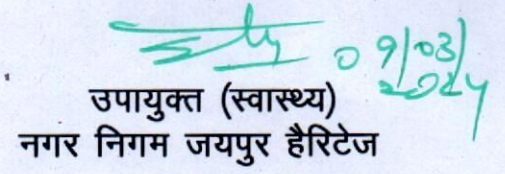 09/03/
2024
उपायुक्त (स्वास्थ्य)
नगर निगम जयपुर हैरिटेज